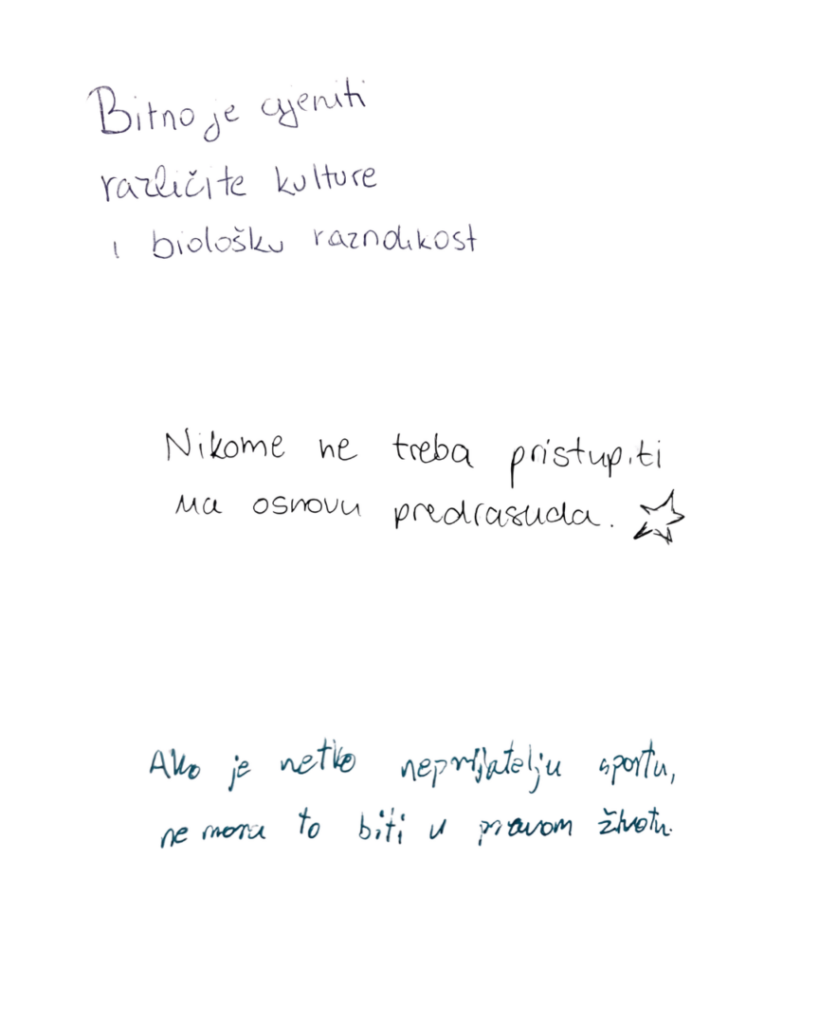 Bitno je cijeniti
različite kulture
i biološku raznolikost
Nikome ne treba pristupiti
na osnovu predrasuda.
Ako je netko neprijatelj u sportu,
ne mora to biti u pravom životu.